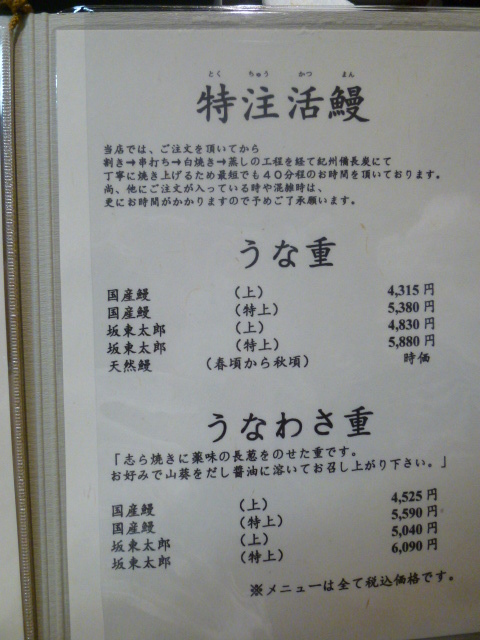 とく ちゅう かつ まん
特注活鰻
当店では、ご注文を頂いてから
割き→串打ち→白焼き→蒸しの工程を経て紀州備長炭にて
丁寧に焼き上げるため最短でも４０分程のお時間を頂いております。
尚、他にご注文が入っている時や混雑時は、
更にお時間がかかりますので予めご了承願います。
うな重
国産鰻 （上） 4,315 円
国産鰻 （特上） 5,380 円
坂東太郎 （上） 4,830 円
坂東太郎 （特上） 5,880 円
天然鰻 （春頃から秋頃） 時価
うなわさ重
「志ら焼きに薬味の長葱をのせた重です。
お好みで山葵をだし醤油に溶いてお召し上がり下さい。」
国産鰻 （上） 4,525 円
国産鰻 （特上） 5,590 円
坂東太郎 （上） 5,040 円
坂東太郎 （特上） 6,090 円
※メニューは全て税込価格です。